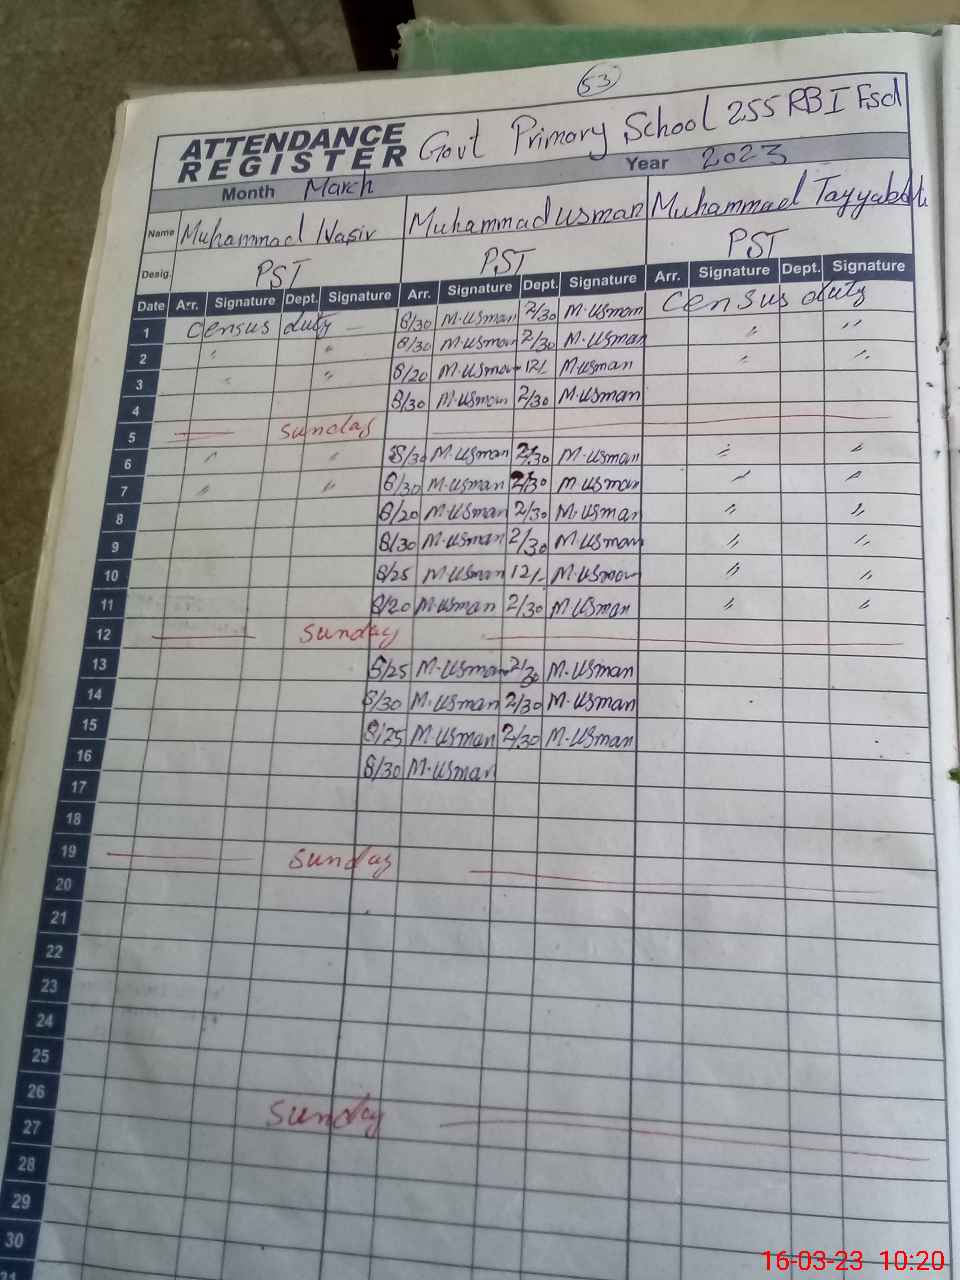 53
ATTENDANCE REGISTER Govt Primary School 255 RB I Fsd
Month March Year 2023
Name Muhammad Nasir Muhammad Usman Muhammad Tayyab
Desig. PST PST PST
Date Arr. Signature Dept. Signature Arr. Signature Dept. Signature Arr. Signature Dept. Signature
1 Census duty — 8/30 M.Usman 2/30 M.Usman Census duty
2 " " 8/30 M.Usman 2/30 M.Usman " "
3 " " 8/20 M.Usman 12/- M.Usman " "
4 8/30 M.Usman 2/30 M.Usman
5 Sunday
6 " " 8/30 M.Usman 2/30 M.Usman " "
7 " " 8/30 M.Usman 2/30 M.Usman " "
8 8/20 M.Usman 2/30 M.Usman " "
9 8/30 M.Usman 2/30 M.Usman " "
10 8/25 M.Usman 12/- M.Usman " "
11 8/20 M.Usman 2/30 M.Usman " "
12 Sunday
13 8/25 M.Usman 2/30 M.Usman
14 8/30 M.Usman 2/30 M.Usman
15 8/25 M.Usman 2/30 M.Usman
16 8/30 M.Usman
17
18
19 Sunday
20
21
22
23
24
25
26 Sunday
27
28
29
30
31
16-03-23 10:20